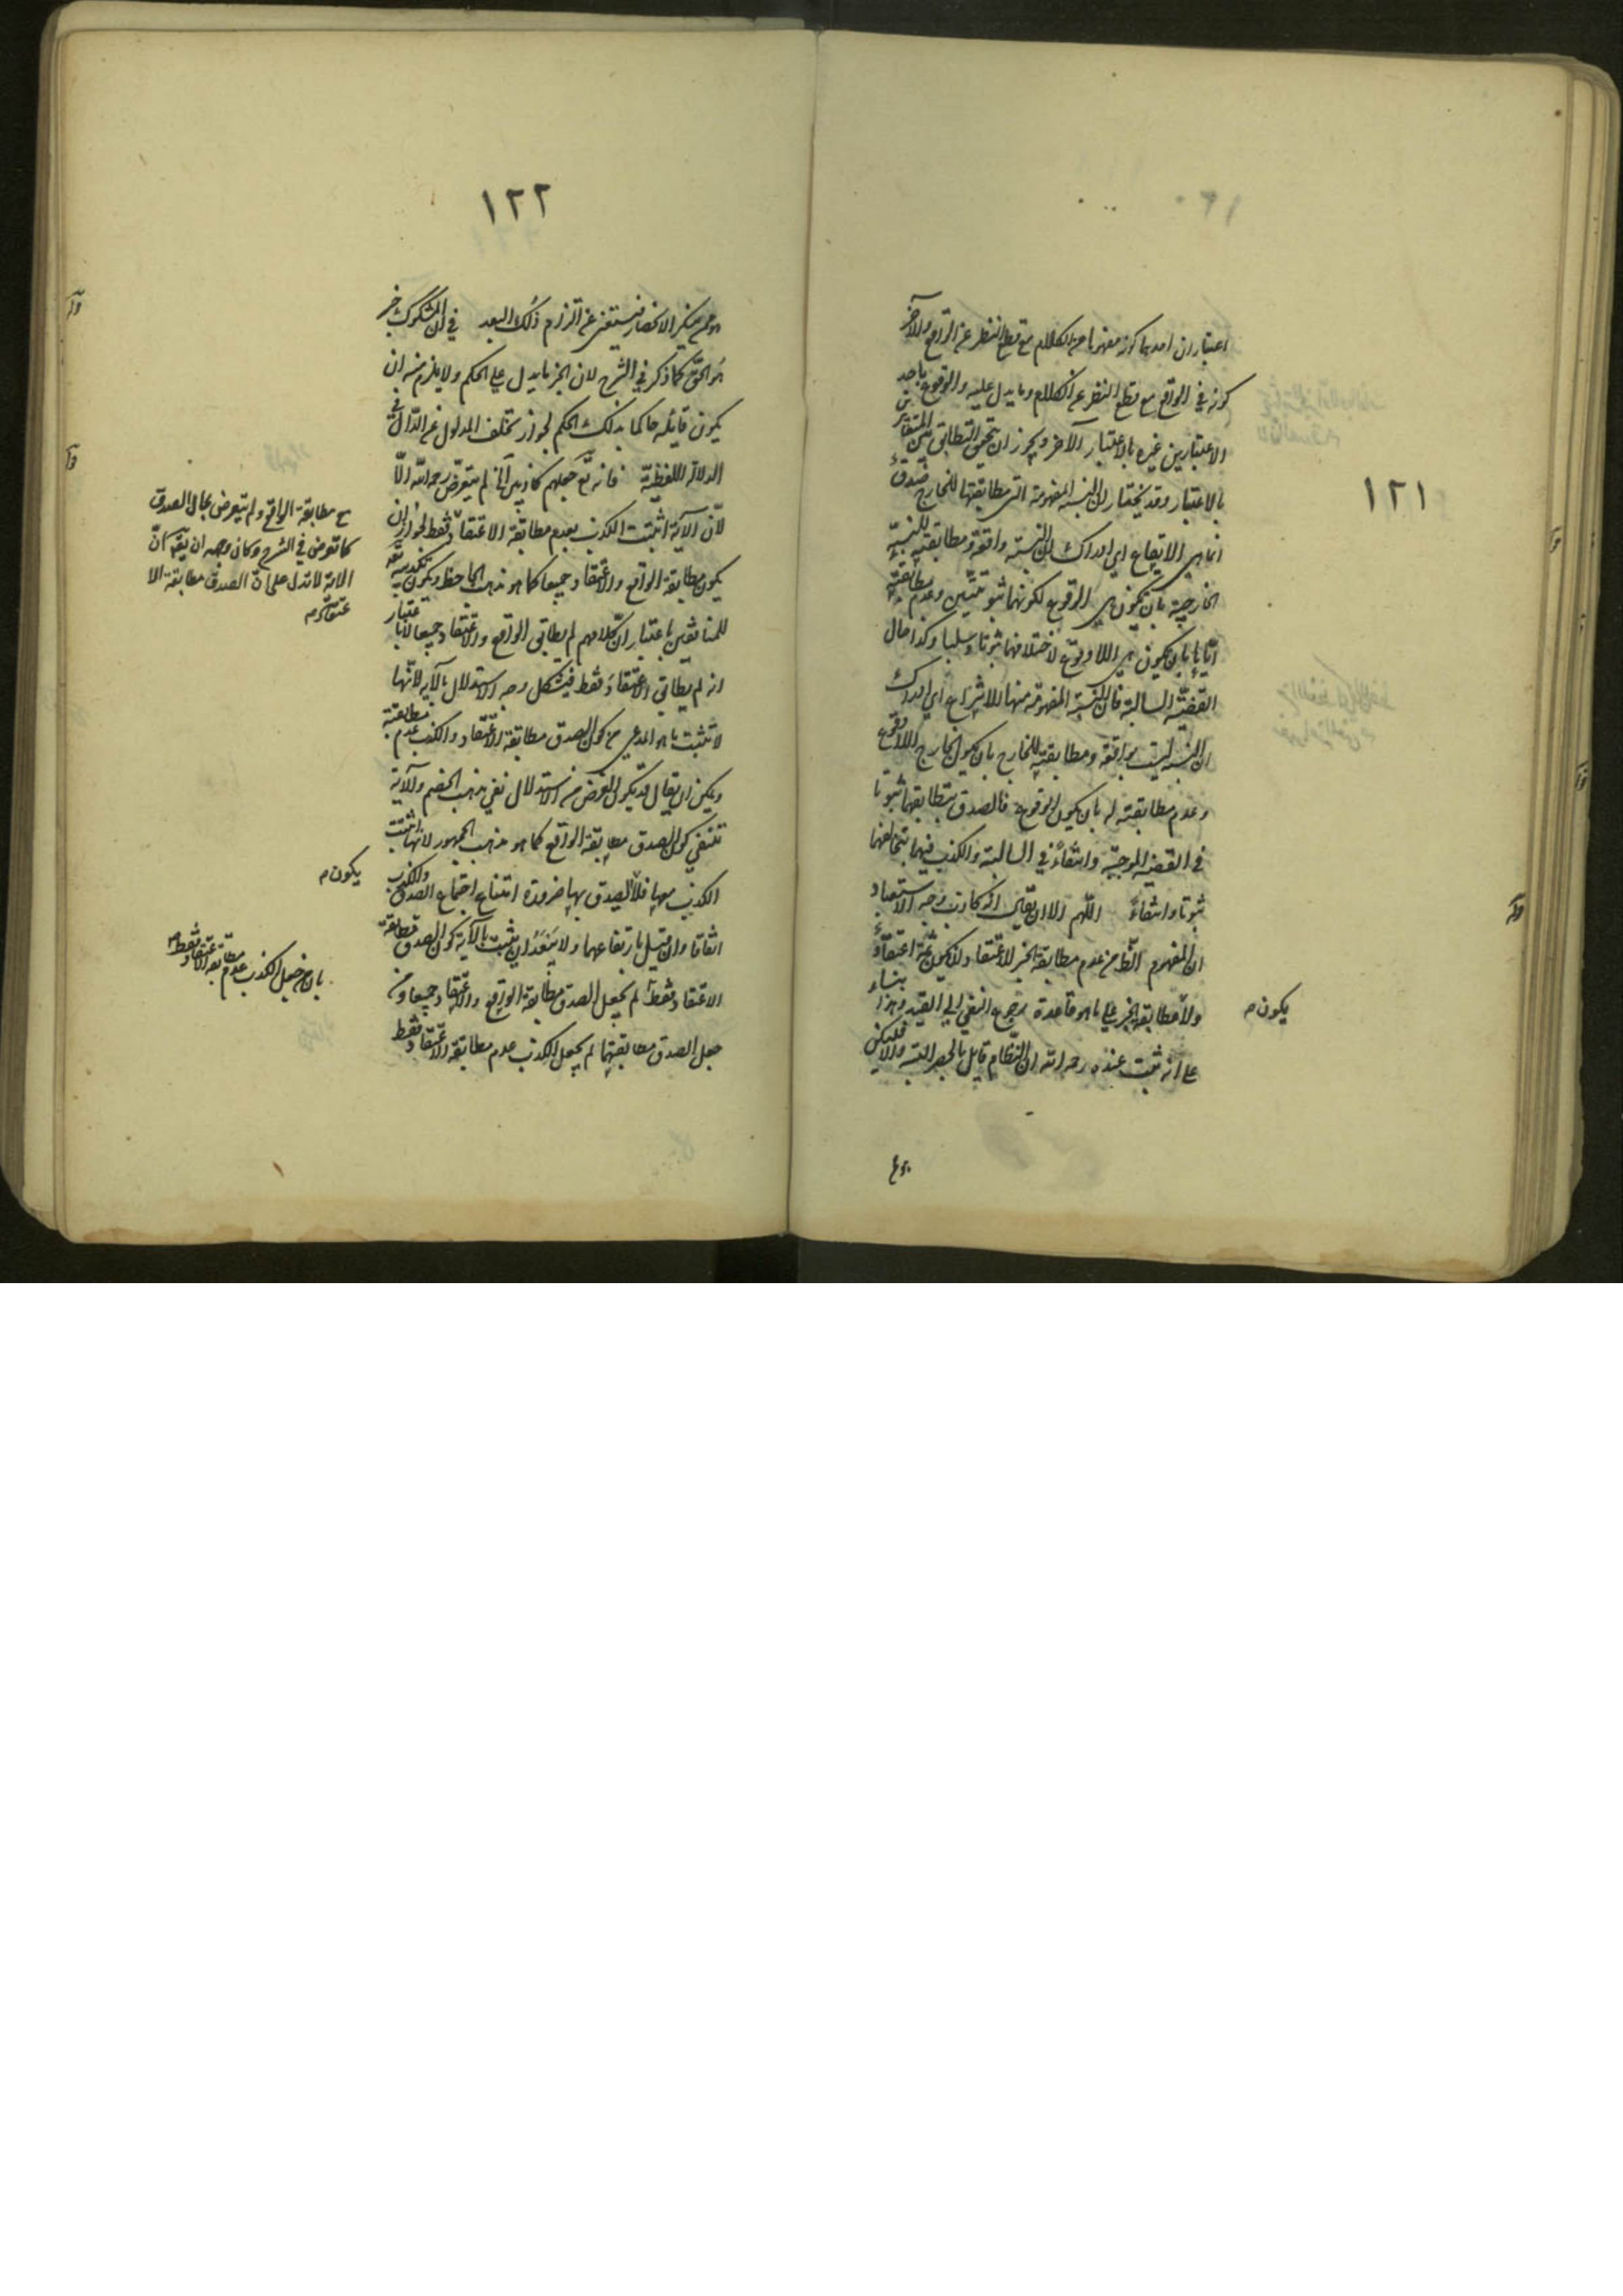 ١٢١
اعتباران احدهما كونه مفهوما من الكلام مع قطع النظر عن الواقع والآخر
كونه في الواقع مع قطع النظر عن الكلام وما يدل عليه والوقوع باحد
الاعتبارين غيره بالاعتبار الآخر ويجوز ان يتحقق التطابق بين المتغايرين
بالاعتبار وقد يختار ان النسبة المفهومة التي مطابقتها للخارج صدق
انما هي الايقاع اي ادراك ان النسبة واقعة ومطابقته للنسبة
الخارجية بان تكون هي الوقوع لكونهما ثبوتيتين وعدم مطابقته
اياها بان يكون هي اللاوقوع لاختلافهما ثبوتا وسلبا وكذا حال
القضية السالبة فان النسبة المفهومة منها الانتزاع اي ادراك
ان النسبة ليست بواقعة ومطابقته للخارج بان يكون الخارج اللاوقوع
وعدم مطابقته له بان يكون الوقوع فالصدق بتطابقهما ثبوتا
في القضية الموجبة وانتفاءً في السالبة والكذب فيهما بتخالفهما
ثبوتا وانتفاءً اللهم الا ان يقال انه كاذب وجه الاستبعاد
ان المفهوم الظ من عدم مطابقة الخبر لاعتقاد ان يكون ثمة اعتقاد
ولا مطابقة الخبر على ما هو قاعدة رجوع النفي الى القيد وهذا بناء
يكون م
على انه ثبت عنده رحمه الله ان النظام قايل بالحصر البتة والا فليكن
١٢٢
هو ممن ينكر الانحصار فيستغنى عن التزام ذلك البعد في ان المشكوك خبر
هو الحق كما ذكر في الشرح لان الخبر ما يدل على الحكم ولا يلزم منه ان
يكون قايله حاكما بذلك الحكم لجواز تخلف المدلول عن الدال في
الدلالة اللفظية فانه تع جعلهم كاذبين الخ لم يتعرض رحمه الله الا
لان الآية اثبتت الكذب بعدم مطابقة الاعتقاد فقط لجواز ان
يكون مطابقة الواقع والاعتقاد جميعا كما هو مذهب الجاحظ ويكون تكذيبه تع
للمنافقين باعتبار ان كلامهم لم يطابق الواقع والاعتقاد جميعا لا باعتبار
انه لم يطابق الاعتقاد فقط فيشكل وجه الاستدلال بالآية لانها
لا تثبت ما هو المدعى من كون الصدق مطابقة الاعتقاد والكذب عدم مطابقته
ويمكن ان يقال قد يكون الغرض من الاستدلال نفي مذهب الخصم والآية
تنفي كون الصدق مطابقة الواقع كما هو مذهب الجمهور لانها اثبتت
الكذب معها فلا يصدق بها ضرورة امتناع اجتماع الصدق والكذب
اتفاقا وان قيل بارتفاعهما ولا يبعد ان يثبت بالآية كون الصدق مطابقة
الاعتقاد فقط لم يجعل الصدق مطابقة الواقع والاعتقاد جميعا ومن
جعل الصدق مطابقتهما لم يجعل الكذب عدم مطابقة الاعتقاد فقط
مع مطابقة الواقع ولم يتعرض بحال الصدق
كما تعرض في الشرح وكان وجهه ان يقال ان
الآية لا تدل على ان الصدق مطابقة الا
عتقاد م
يكون م
بان من جعل الكذب عدم مطابقة الاعتقاد فقط م